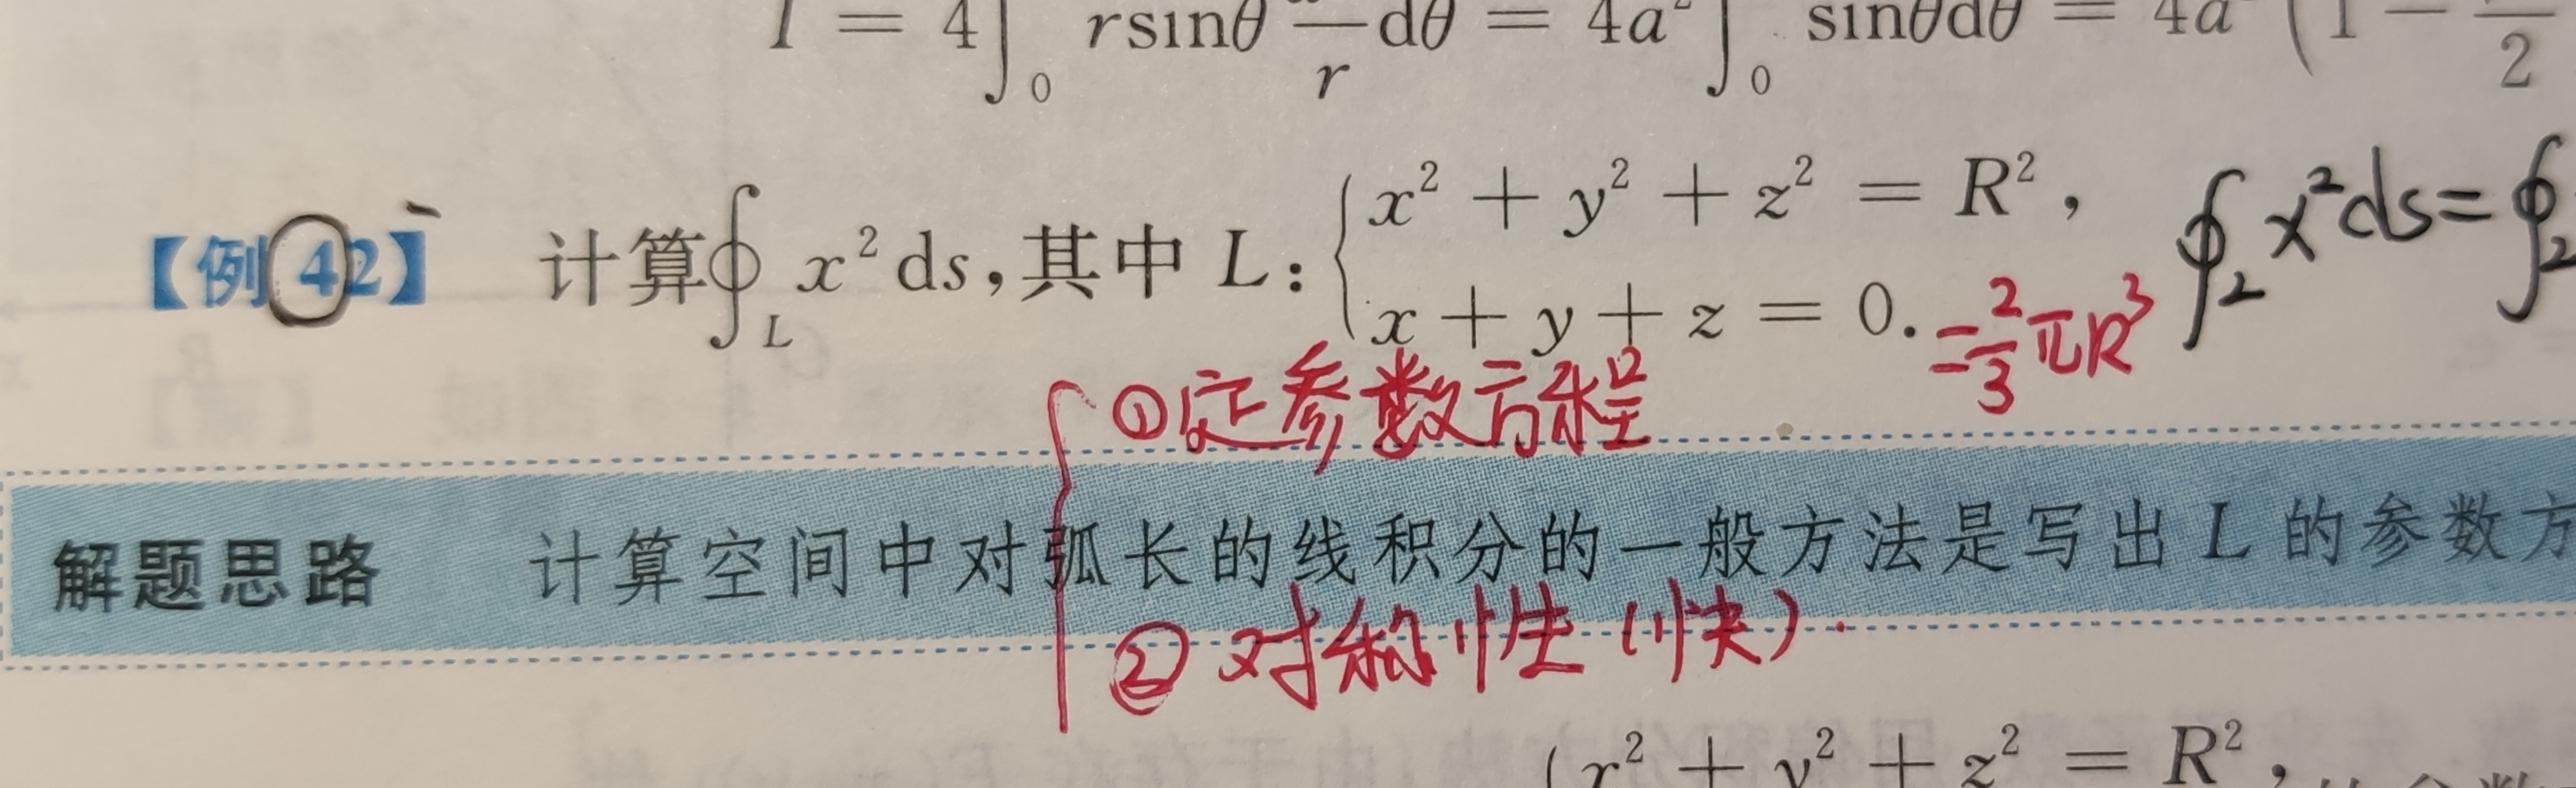 I = 4∫₀ r sinθ —/r dθ = 4a² ∫₀ sinθdθ = 4a² (1 − —/2
【例42】 计算∮_L x² ds,其中 L: { x² + y² + z² = R², x + y + z = 0.
∮₂ x²ds=∮₂
=2/3 πR³
①定参数方程
解题思路 计算空间中对弧长的线积分的一般方法是写出 L 的参数方
②对称性(快).
{ x² + y² + z² = R²,